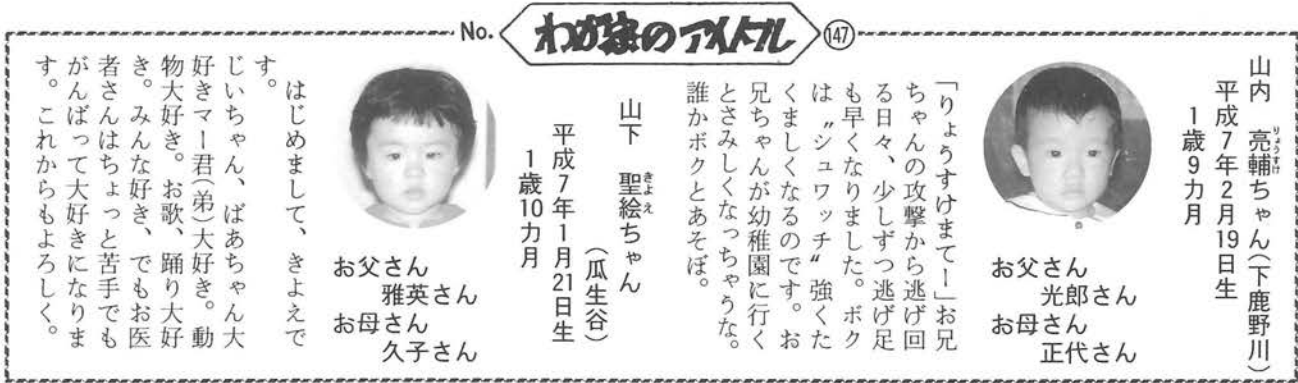 No. わが家のアイドル 147
山内 亮輔ちゃん(下鹿野川)
りょうすけ
平成7年2月19日生
1歳9カ月
お父さん
光郎さん
お母さん
正代さん
「りょうすけまてー」お兄
ちゃんの攻撃から逃げ回
る日々、少しずつ逃げ足
も早くなりました。ボク
は〝シュワッチ〟強くた
くましくなるのです。お
兄ちゃんが幼稚園に行く
とさみしくなっちゃうな。
誰かボクとあそぼ。
山下 聖絵ちゃん
きよえ
(瓜生谷)
平成7年1月21日生
1歳10カ月
お父さん
雅英さん
お母さん
久子さん
はじめまして、きよえで
す。
じいちゃん、ばあちゃん大
好きマー君(弟)大好き。動
物大好き。お歌、踊り大好
き。みんな好き、でもお医
者さんはちょっと苦手でも
がんばって大好きになりま
す。これからもよろしく。